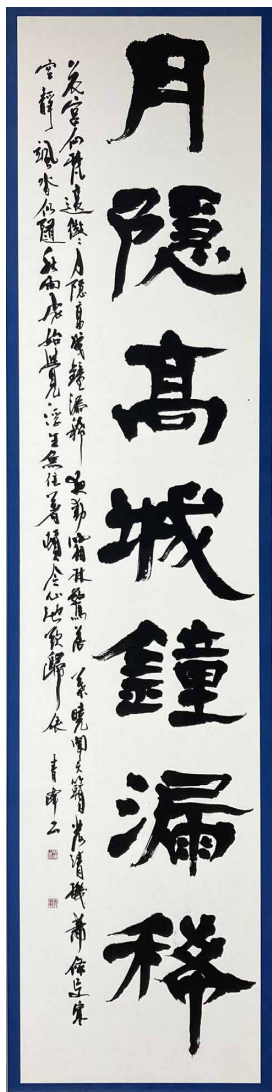 月隱高城鐘漏稀
花宮仙梵遠微微月隱高城鐘漏稀夜動霜林驚落葉曉聞天籟發清機蕭條寒
空靜颯沓仍隨秋雨飛始覺浮生無住著頓令心地欲歸依